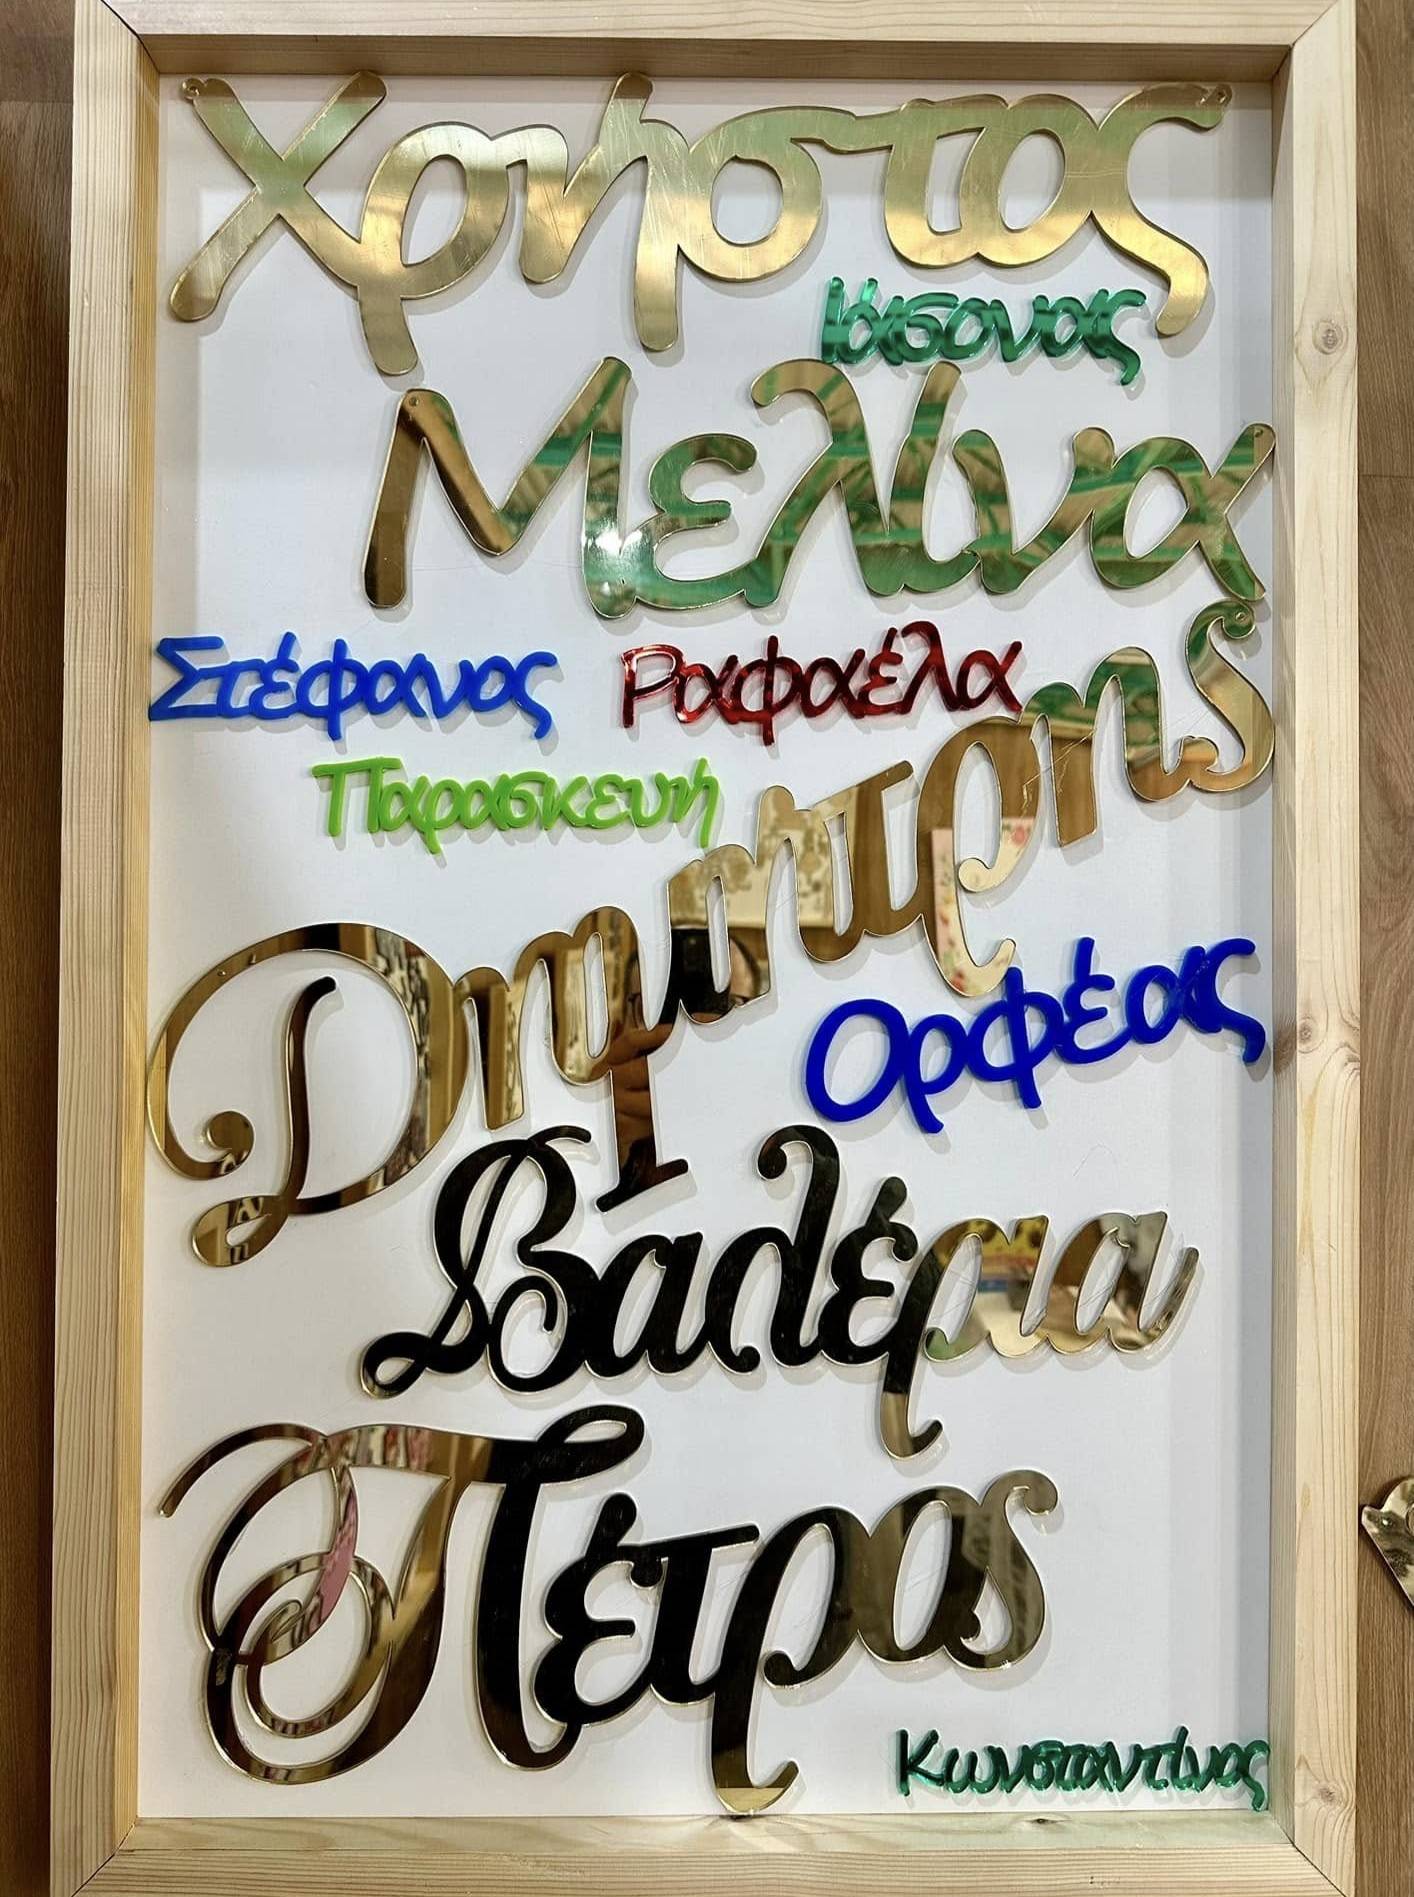 Χρήστος
Ιάσονας
Μελίνα
Στέφανος Ραφαέλα
Παρασκευή
Δημήτρης
Ορφέας
Βαλέρια
Πέτρος
Κωνσταντίνος